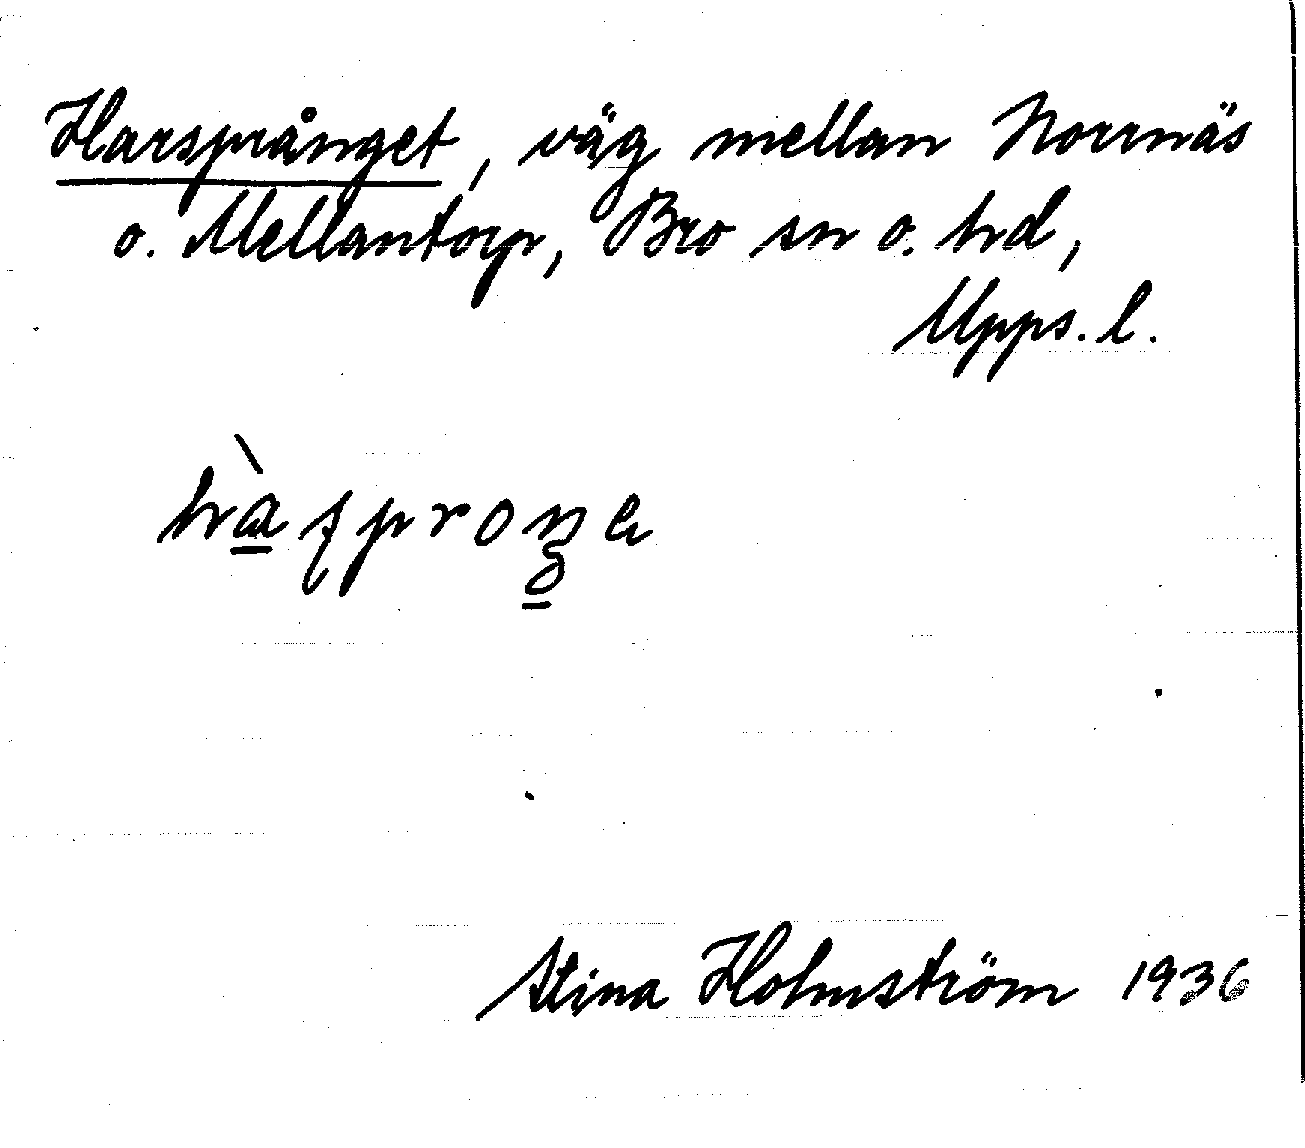 Harsprånget, väg mellan Norrnäs
o. Mellantorp, Bro sn o. hd,
Upps. l.
hàʂproŋe
Stina Holmström 1936